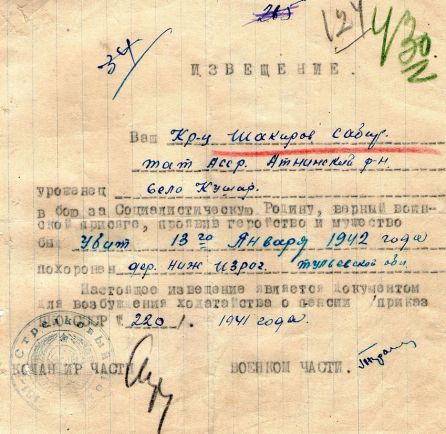 265
124
34
430
ИЗВЕЩЕНИЕ.
Ваш Кр-ц Шакиров Сабир.
тат Асср. Атнинский р-н
уроженец село Кушар.
в бою за Социалистическую Родину, верный воин-
ской присяге, проявив геройство и мужество
он убит 13го Января 1942 года
похоронен дер. Ниж Изрог. Тульской обл
Настоящее извещение является документом
для возбуждения ходатайства о пенсии /приказ
СССР № 220/. 1941 года.
Стрелковый
КОМАНДИР ЧАСТИ
ВОЕНКОМ ЧАСТИ.